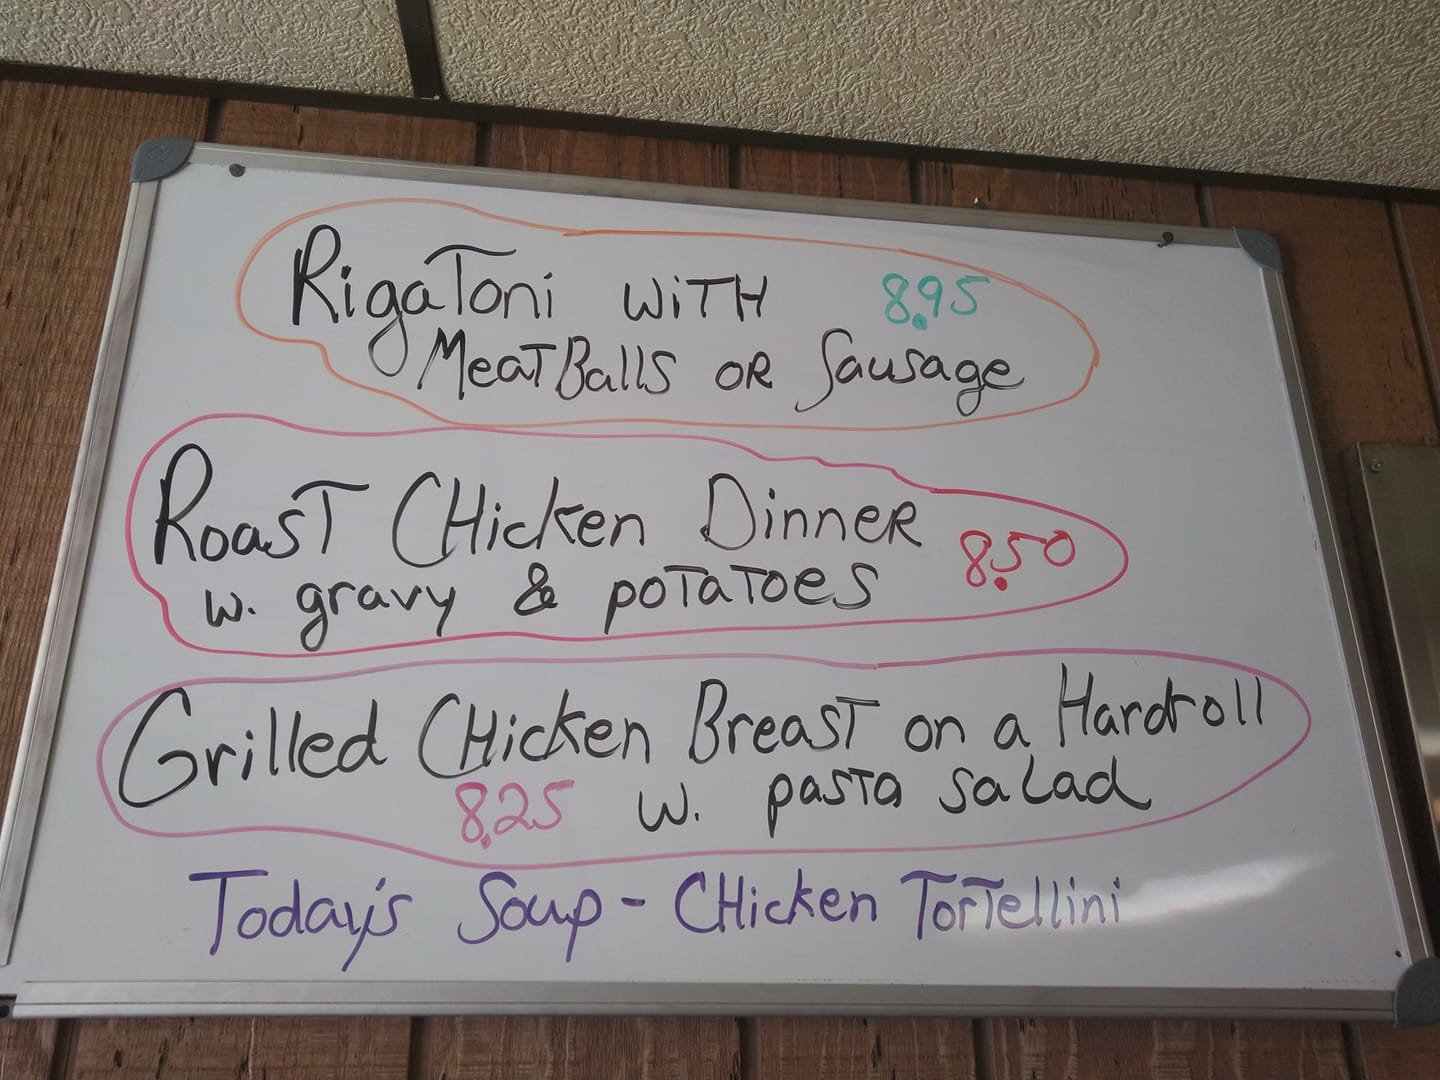 RigaToni WiTH 8.95
MeaTBallS OR Sausage
RoasT CHicken DinneR 8.50
w. gravy & poTaToeS
Grilled CHicken BreasT on a Hardroll
8.25 w. pasTa saLad
Today's Soup - CHicken TorTellini